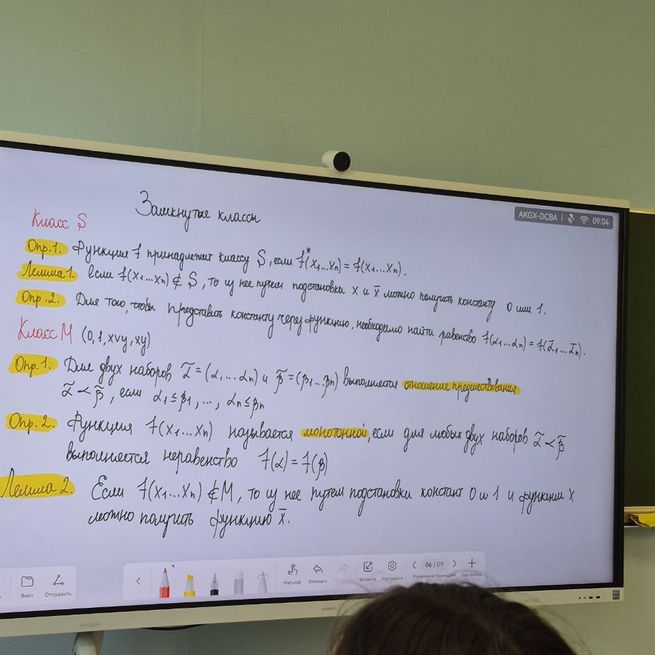 Замкнутые классы
AKGX-DCBA 09:04
Класс S
Опр.1. Функция f принадлежит классу S, если f*(x₁...xₙ) = f(x₁...xₙ).
Лемма 1. Если f(x₁...xₙ) ∉ S, то из неё путем подстановки x и x̄ можно получить константу 0 или 1.
Опр.2. Для того, чтобы представить константу через функцию, необходимо найти равенство f(α₁...αₙ) = f(ᾱ₁...ᾱₙ).
Класс M (0, 1, x∨y, xy)
Опр.1. Для двух наборов α̃ = (α₁...αₙ) и β̃ = (β₁...βₙ) выполняется отношение предшествования
α̃ ≺ β̃, если α₁ ≤ β₁, ..., αₙ ≤ βₙ
Опр.2. Функция f(x₁...xₙ) называется монотонной, если для любых двух наборов α̃ ≺ β̃
выполняется неравенство f(α) = f(β)
Лемма 2. Если f(x₁...xₙ) ∉ M, то из неё путем подстановки констант 0 и 1 и функции x
можно получить функцию x̄.
Файл Отправить Масштаб Отменить 06/09